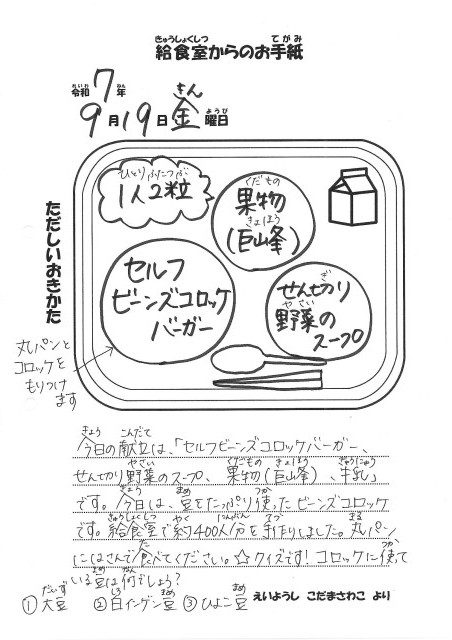 給食室からのお手紙
令和7年
9月19日金曜日
ただしいおきかた
1人2粒
果物
(巨峰)
セルフ
ビーンズコロッケ
バーガー
せん切り
野菜の
スープ
丸パンと
コロッケを
もりつけ
ます
今日の献立は、「セルフビーンズコロッケバーガー、
せん切り野菜のスープ、果物(巨山峰)、牛乳」
です。今日は、豆をたっぷり使ったビーンズコロッケ
です。給食室で約400人分を手作りしました。丸パン
にはさんで食べてください。☆クイズです!コロッケに使って
いる豆は何でしょう?
①大豆 ②白インゲン豆 ③ひよこ豆
えいようし こだまさわこ より